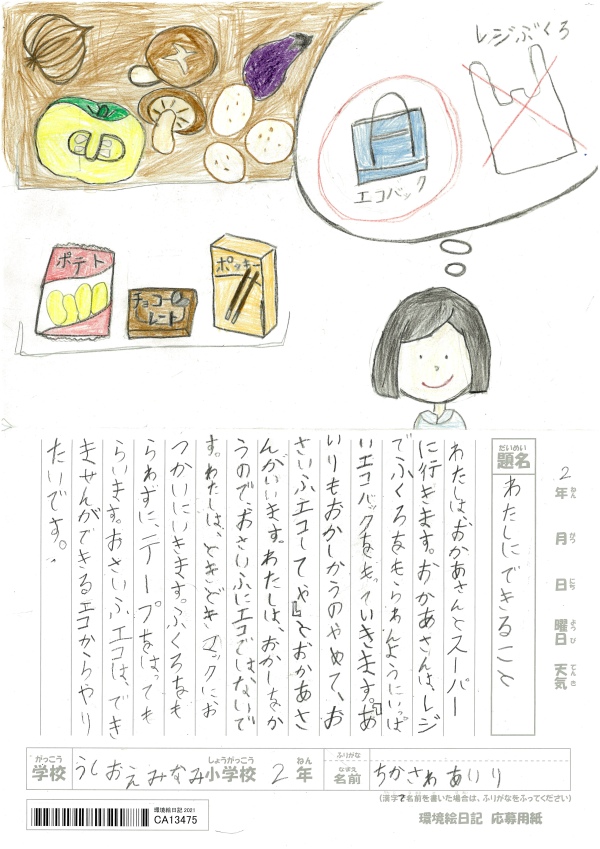 レジぶくろ
エコバック
ポテト
チョコー
レート
ポッキー
2年 月 日 曜日 天気
ねん がつ にち ようび てんき
だいめい
題名
わたしにできること
わたしは、おかあさんとスーパー
に行きます。おかあさんは、レジ
でふくろをもらわんようにいっぱ
いエコバックをもっていきます。「あ
いりもおかしかうのやめて、お
さいふエコしてや」とおかあさ
んがいいます。わたしは、おかしをか
うので、おさいふにエコではないで
す。わたしは、ときどきマックにお
つかいにいきます。ふくろをも
らわずに、テープをはっても
らいます。おさいふエコは、でき
ませんができるエコからやり
たいです。
がっこう しょうがっこう ねん
学校 うしおえみなみ小学校 2年
ふりがな
なまえ
名前 ちかさわ あいり
(漢字で名前を書いた場合は、ふりがなをふってください)
環境絵日記 2021
CA13475
環境絵日記 応募用紙